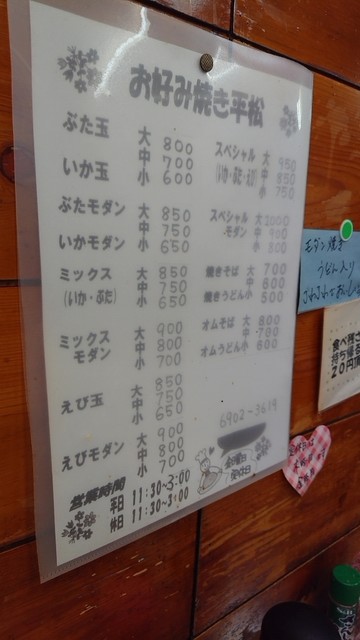 お好み焼き平松
ぶた玉
いか玉
大 800
中 700
小 600
ぶたモダン
いかモダン
大 850
中 750
小 650
ミックス
(いか・ぶた)
大 850
中 750
小 650
ミックス
モダン
大 900
中 800
小 700
えび玉
大 850
中 750
小 650
えびモダン
大 900
中 800
小 700
スペシャル
(いか・ぶた・えび)
大 950
中 850
小 750
スペシャル
モダン
大 1000
中 900
小 800
焼きそば
焼きうどん
大 700
中 600
小 500
オムそば
オムうどん
大 800
中 700
小 600
6902-3619
金曜日
定休日
営業時間
平日 11:30~3:00
休日 11:30~3:00
モダン焼き
うどん入り
食べ残さ
持ち帰る
20円頂